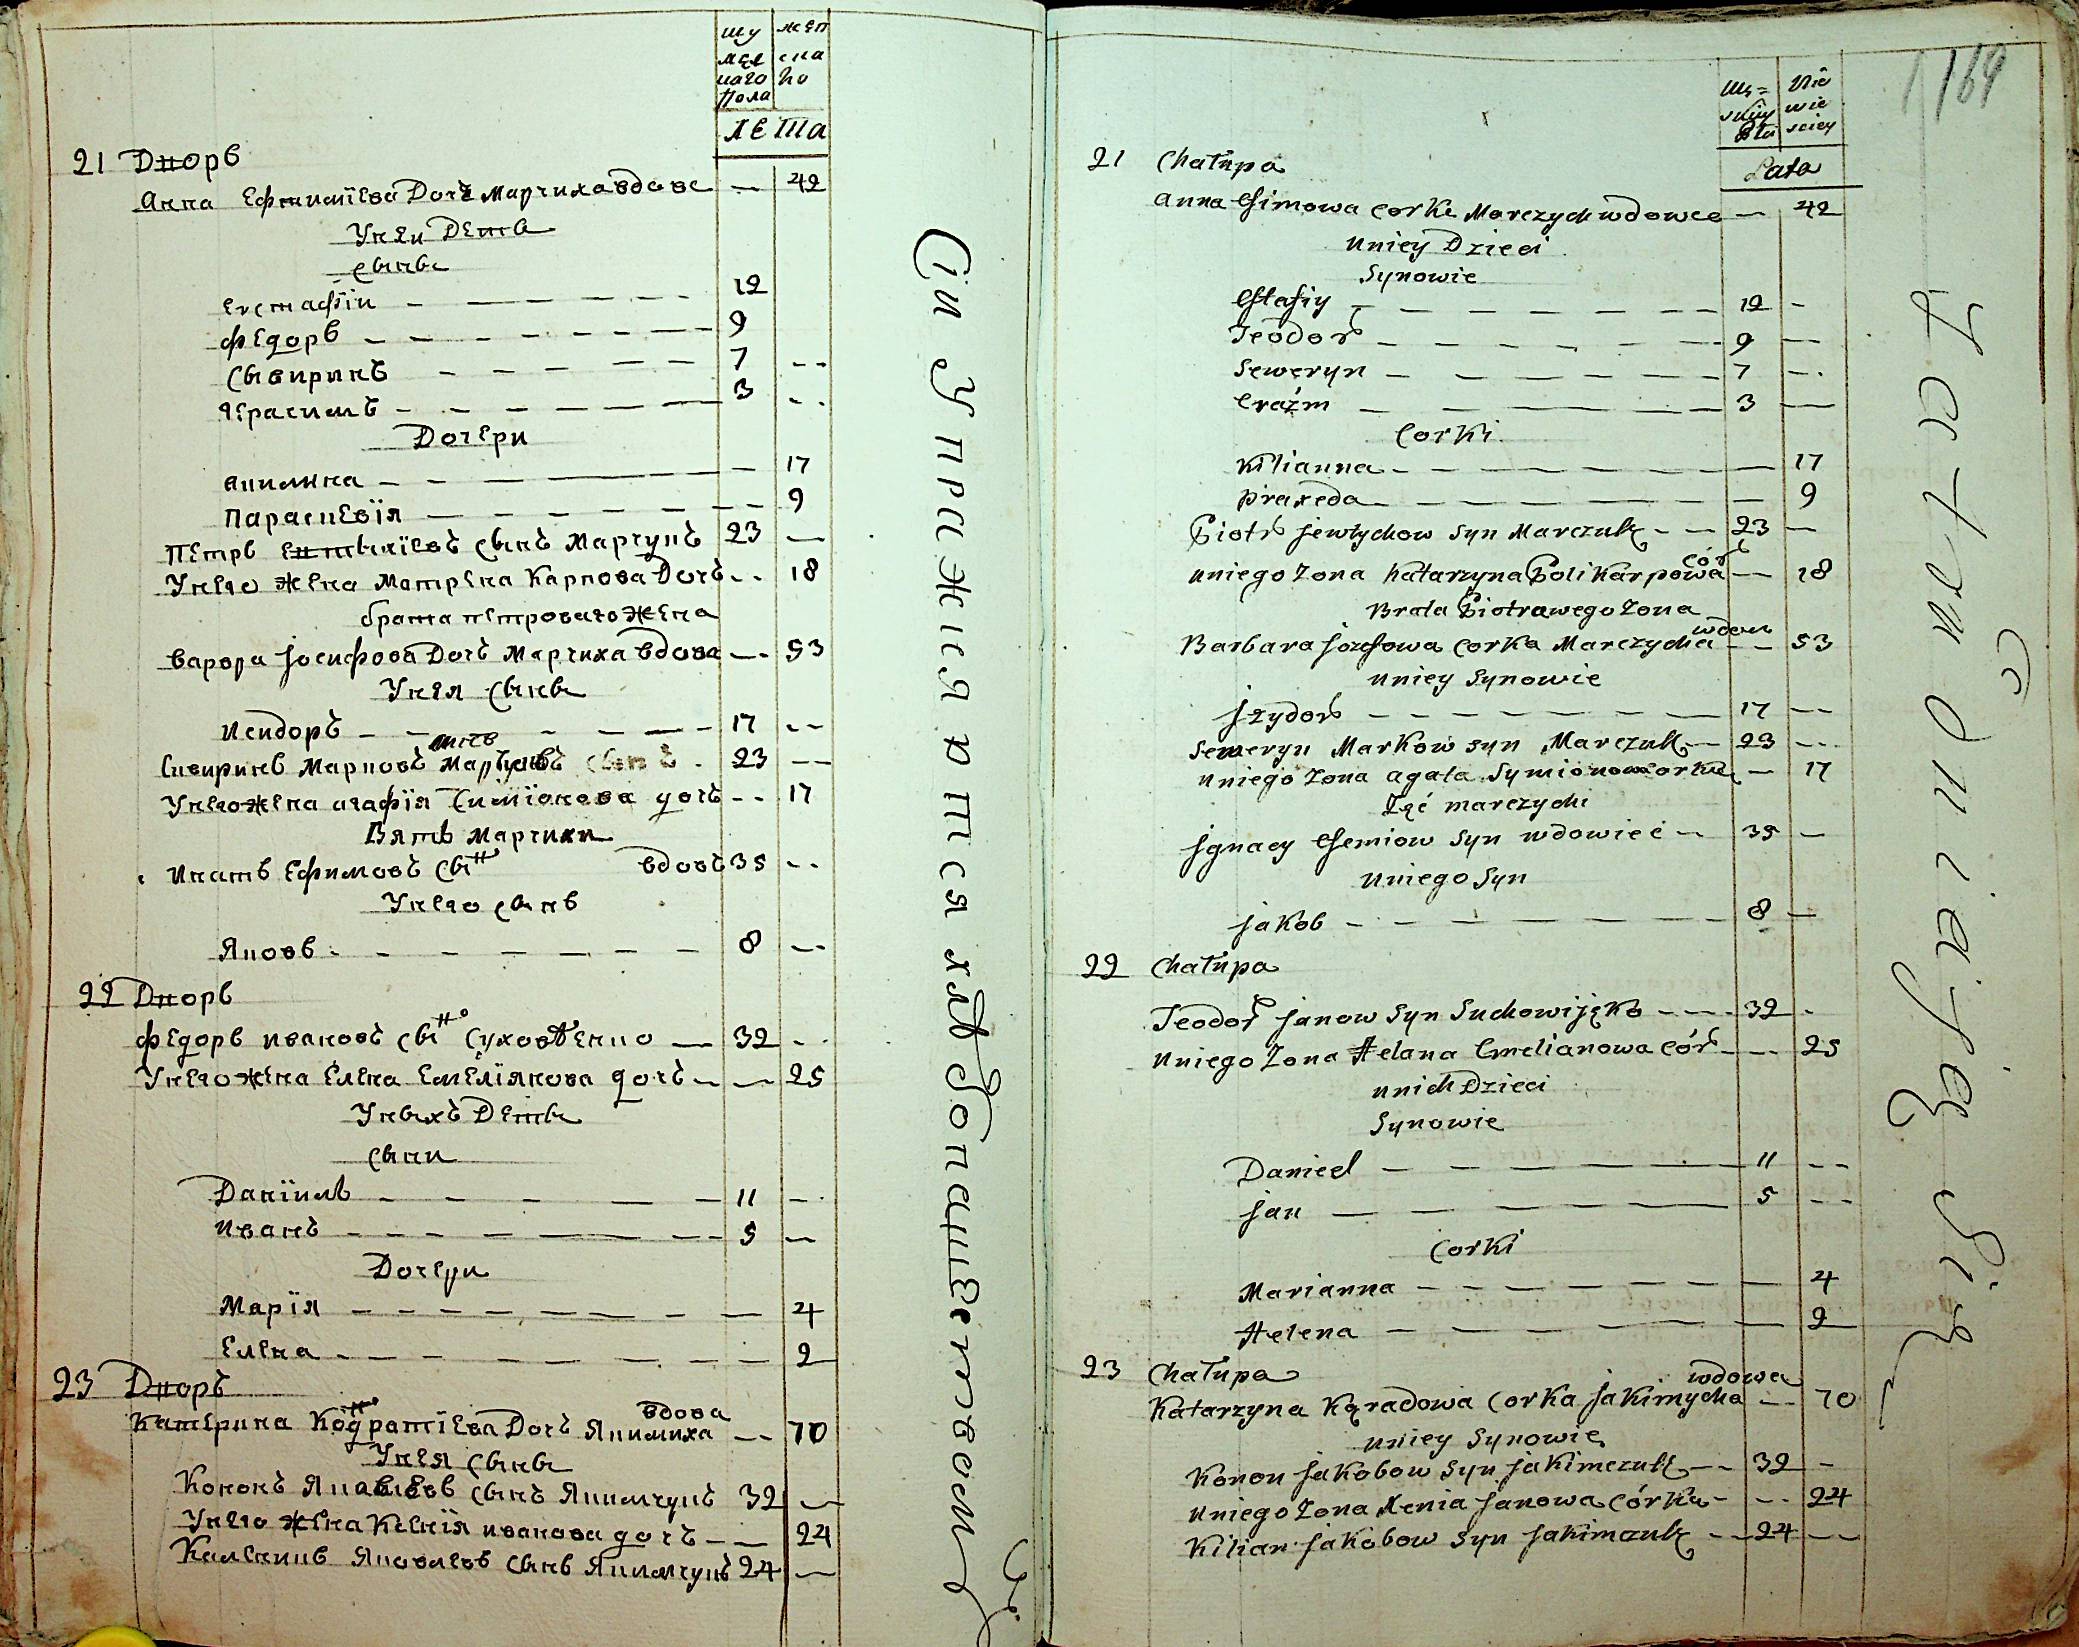 му жен
жес ска
каго ho
Пола
ЛЕТа
21 Дворъ
Анна Ефтимїева Дочъ Марчиха вдова — 42
У неи Дети
Сыны
Евстафїи 12
Федоръ 9
Сывиринъ 7
Герасимъ 3
Дочери
Килина 17
Параскевїя 9
Петръ Евтыхїевъ сынъ Марчукъ 23 —
У него жена Матрена Карпова Дочъ 18
брата петроваго жена
Варвра Іосифова Дочъ Марчиха вдова — 53
У нея сыны
Исидоръ 17
Сивиринъ Марковъ Марчукъ сынъ 23 —
У него жена агафїя Симїонова дочъ 17
Зять Марчихи
Игнатъ Ефимовъ сынъ вдовъ 35
У него сынъ
Яковъ 8
22 Дворъ
Федоръ ивановъ сынъ Суховѣенко — 32
У него жена Елена Емелїянова дочъ — 25
У ныхъ Дети
сыни
Данїилъ 11
иванъ 5
Дочери
Марїя 4
Елена 2
23 Дворъ
вдова
Катерина Кодратїева Дочъ Якимиха — 70
У нея сыны
Кононъ Яковлевъ сынъ Якимчукъ 32 —
У него жена Ксенїя иванова дочъ — 24
Калѣникъ Яковлевъ сынъ Якимчукъ 24 —
Си Упражнятся хлѣбопашествомъ
169
Mę= Nie
skiey wie
Płci sciey
Lata
21 Chałupa
Anna Efimowa Corka Marczycha wdowa — 42
u niey Dzieci
Synowie
Estafiy 12 -
Teodor 9 —
Seweryn 7 —
Erazm 3 —
Corki
Kilianna 17
Praxeda 9
Piotr Jewtychow Syn Marczuk 23 —
u niego Zona Katarzyna Polikarpowa Cór 18
Brata Piotrawego Zona
wdow
Barbara Jozefowa Corka Marczycha 53
u niey Synowie
Jzydor 17 —
Seweryn Markow Syn Marczuk 23
u niego Zona Agata Symionowa orka — 17
Zęć marczychi
Jgnacy Efemiow Syn wdowiec 35 —
u niego Syn
Jakob 8 —
22 Chałupa
Teodor Janow Syn Suchowijęko 32
u niego Zona Helana Emelianowa Cór 25
u nich Dzieci
Synowie
Daniel 11
Jan 5
Corki
Marianna 4
Helena 2
23 Chałupa
wdowa
Katarzyna Kądradowa Corka Jakimycha 70
u niey Synowie
Konon Jakobow Syn Jakimczuk 32 -
u niego Zona Xenia Janowa Córka 24
Kilian Jakobow Syn Jakimczuk 24 —